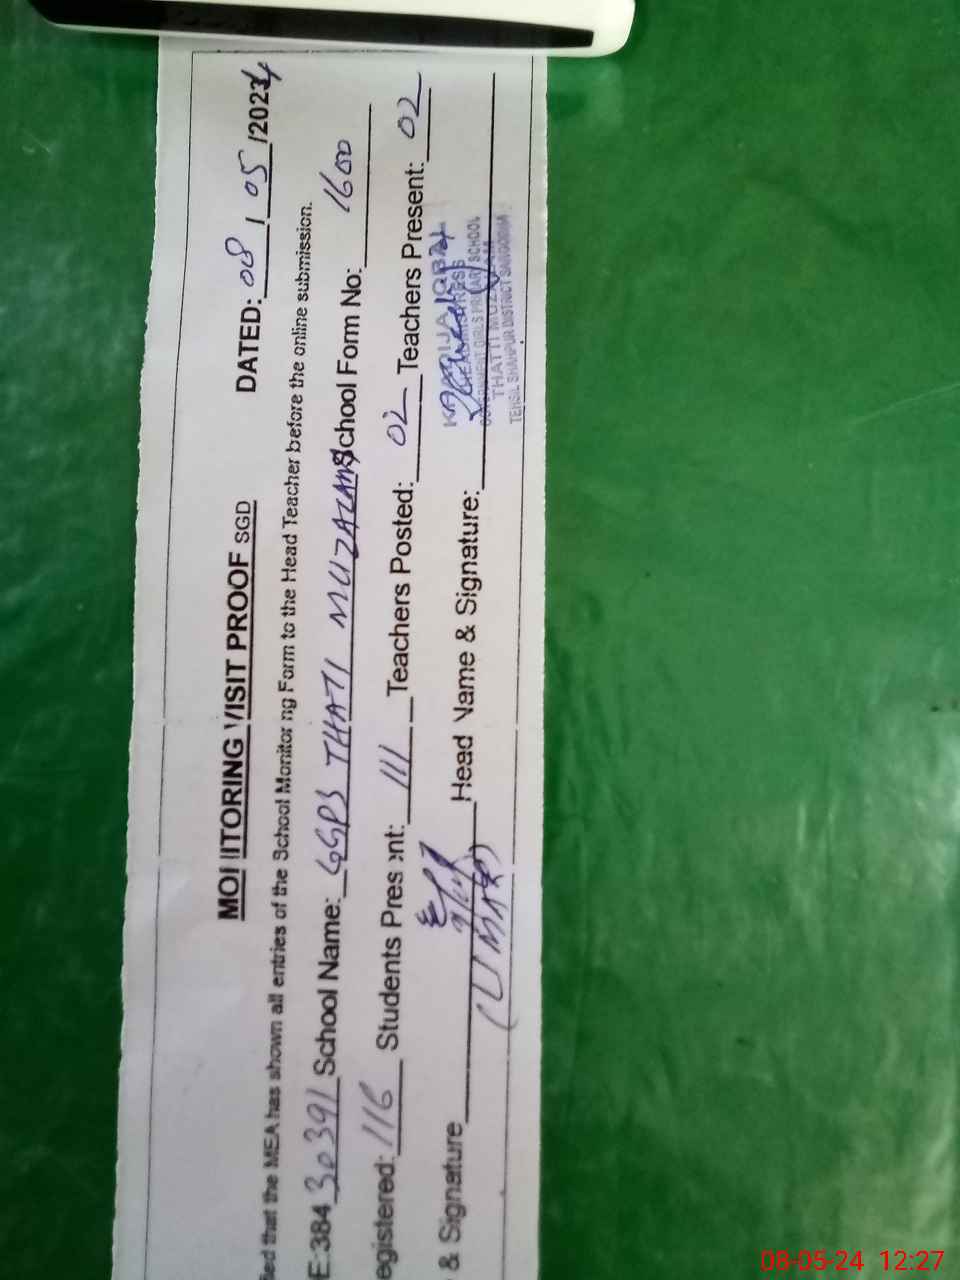 MONITORING VISIT PROOF SGD DATED: 08 / 05 /2024
fied that the MEA has shown all entries of the School Monitoring Form to the Head Teacher before the online submission.
E:384 30391 School Name: GGPS THATI MUZALAM School Form No: 1600
egistered: 116 Students Present: 111 Teachers Posted: 02 Teachers Present: 02
& Signature (UMAR) Head Name & Signature:
HEADMISTRESS
GOVERNMENT GIRLS PRIMARY SCHOOL
THATTI MUZALAM
TEHSIL SHAHPUR DISTRICT SARGODHA
08-05-24 12:27